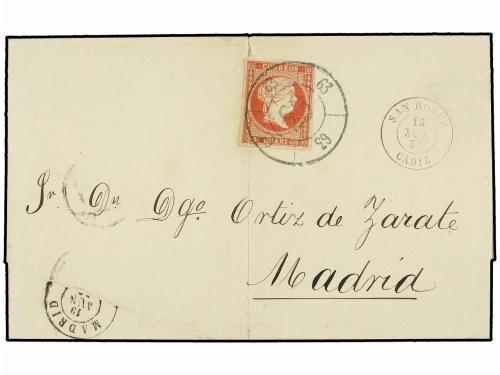 CORREOS
63
63
SAN ROQUE
15
JUN
59
CADIZ
Sr. Dn Dgo Ortiz de Zarate
Madrid
MADRID
19
JUN